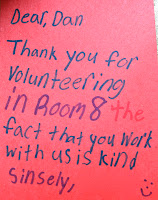 Dear, Dan
Thank you for
Volunteering
in Room 8 the
fact that you work
with us is kind
Sinsely,